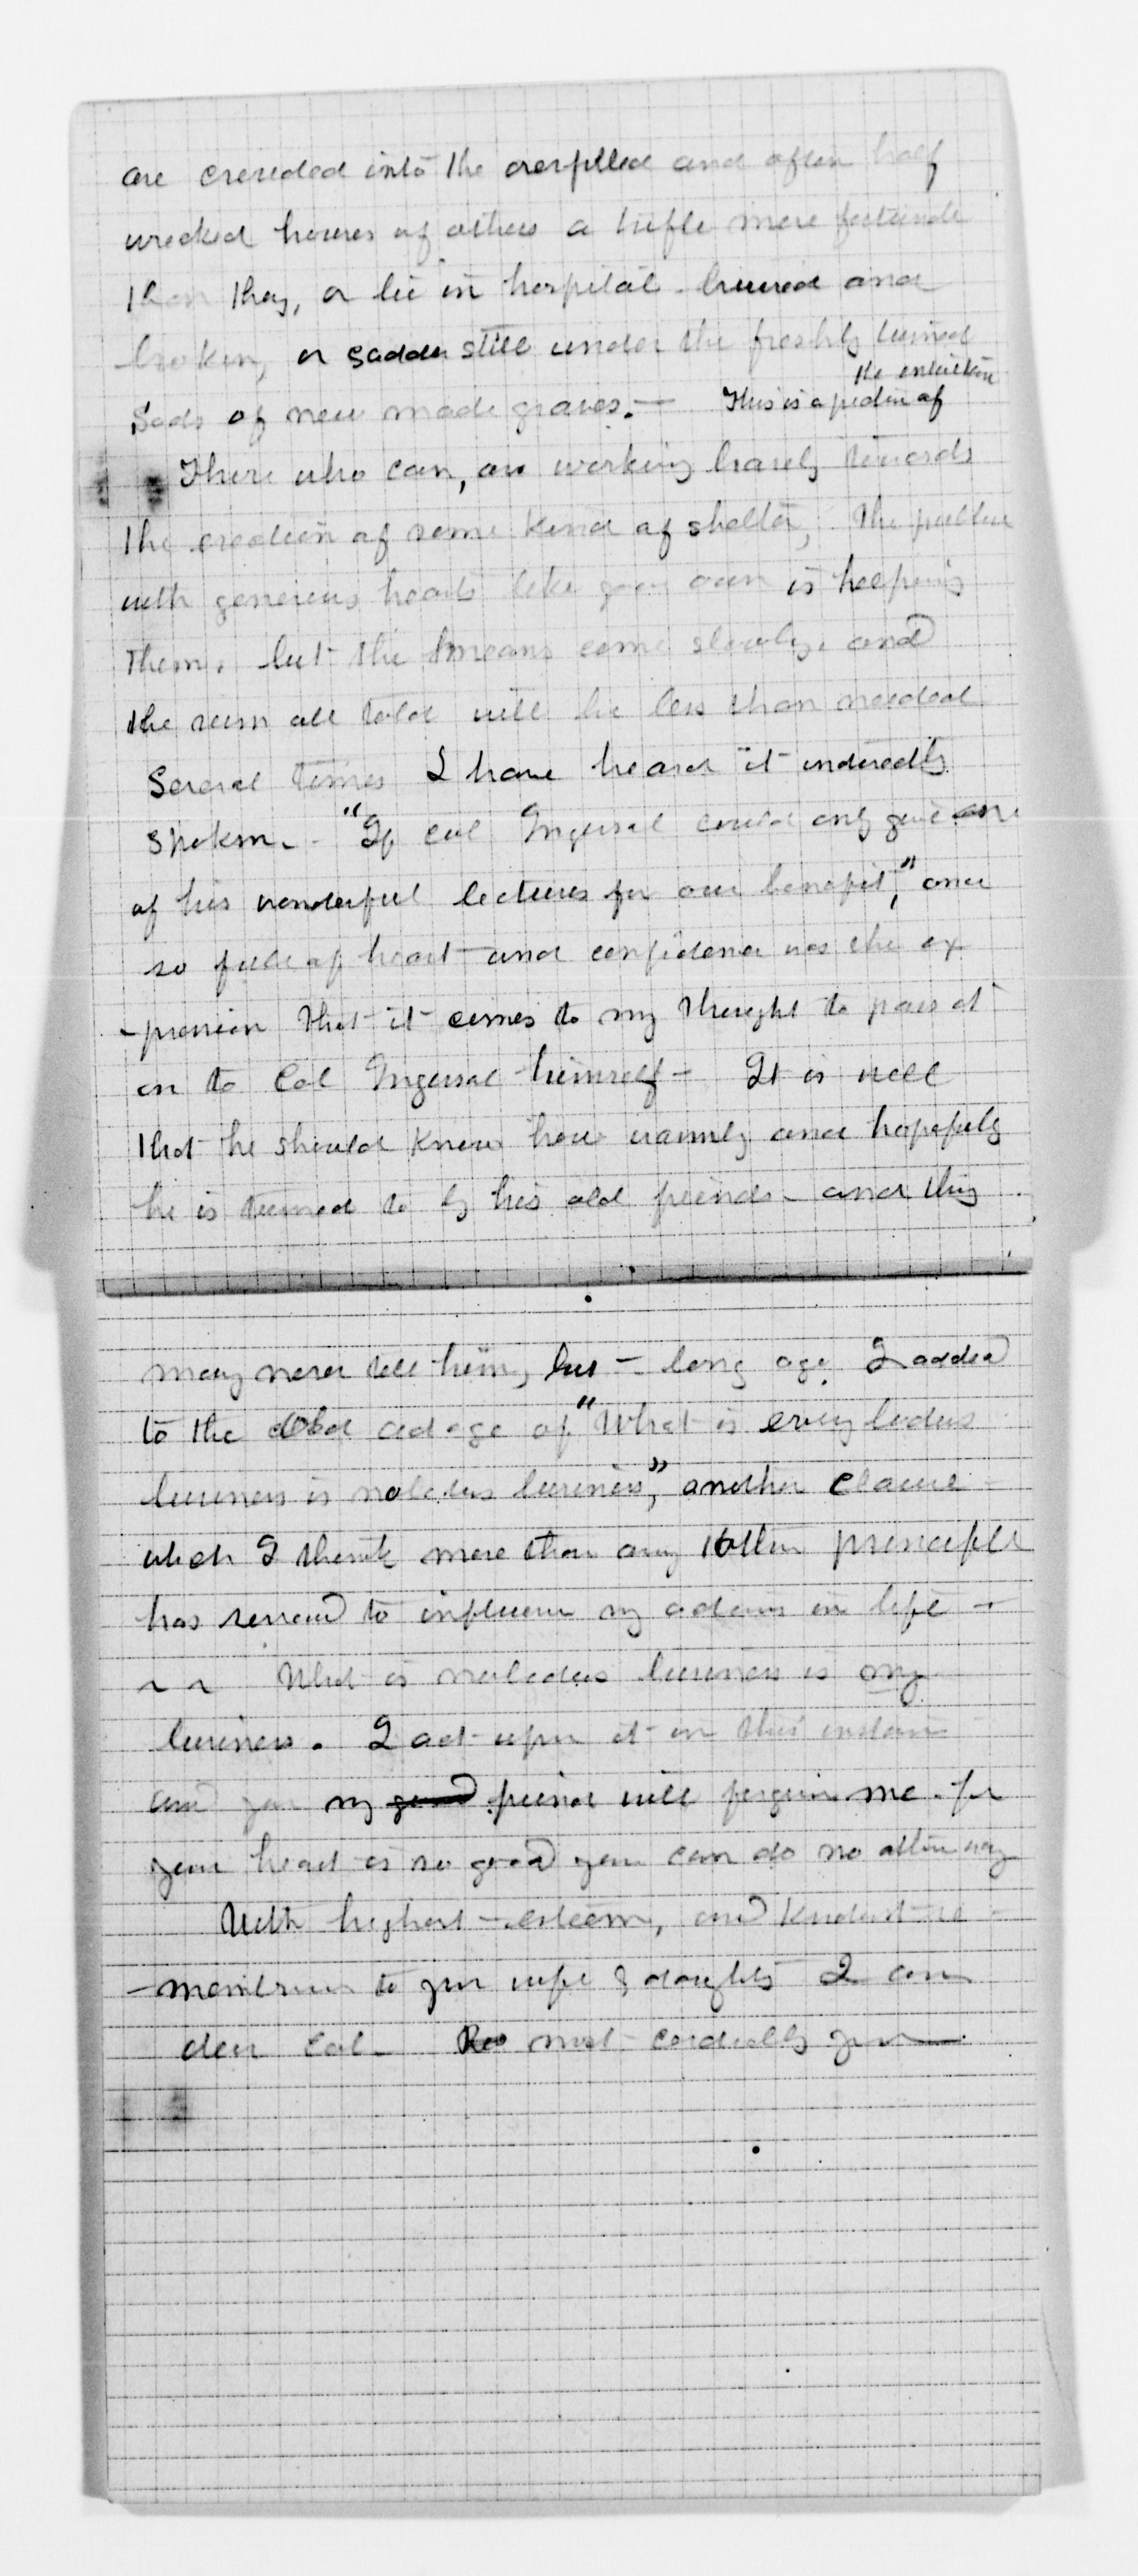 are crowded into the overfilled and often half
wrecked houses of others a trifle more fortunate
than they, or lie in hospital bruised and
broken, or sadder still under the freshly turned
the entire
sods of new made graves. — This is a picture of
Those who can, are working bravely towards
the erection of some kind of shelter, the public
with generous hearts like your own is helping
them. but the means come slowly. and
the sum all told will be less than needed
Several times I have heard it indirectly
spoken. - "If Col Ingersol could only give one
of his wonderful lectures for our benefit," and
so full of heart and confidence was the ex
-pression that it comes to my thought to pass it
on to Col Ingersol himself - It is well
that he should know how warmly and hopefully
he is turned to by his old friends - and they
may never tell him, but - long ago I added
to the old adage of "What is every bodies
business is nobodies business", another clause
which I think more than any other principle
has served to influence my actions in life -
What is nobodies business is my
business. I act upon it in this instance
and you my good friend will forgive me. for
your heart is so good you can do no other way
With highest esteem, and kindest re
-membrances to your wife & daughters I am
dear Col - most cordially yours